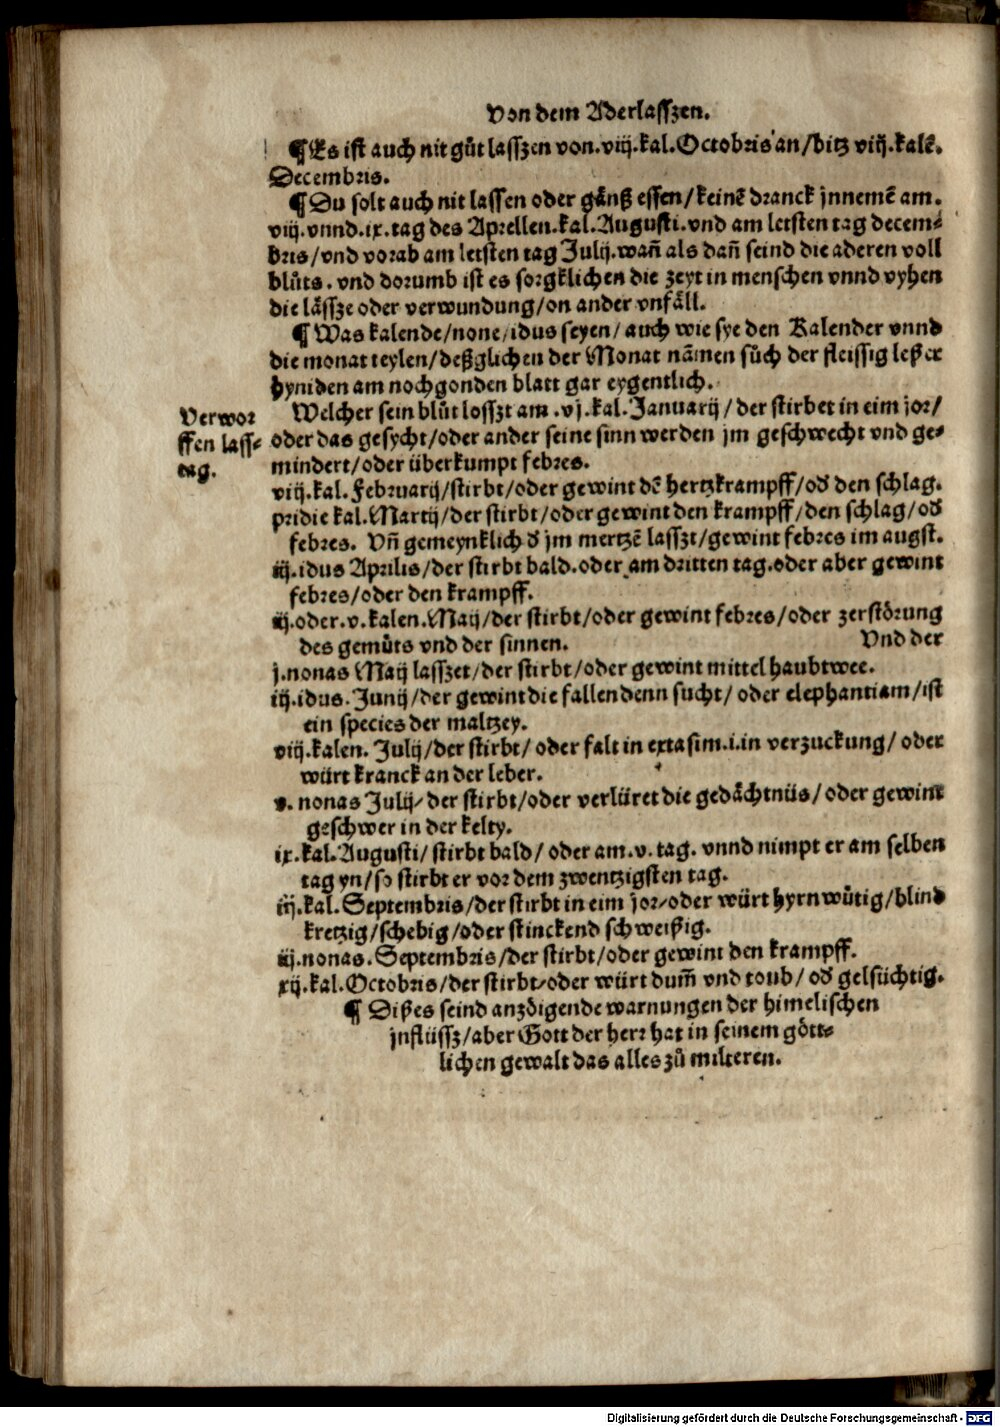 Von dem Aderlasszen.
¶Es ist auch nit gůt lasszen von.viij.kal.Octobris an/bitz viij.kalē.
Decembris.
¶Du solt auch nit lassen oder gånß essen/keinē dranck jnnemē am.
viij.vnnd.ix.tag des Aprellen.kal.Augusti.vnd am letsten tag decem⸗
bris/vnd vorab am letsten tag Julij.wañ als dañ seind die aderen voll
blůts.vnd dorumb ist es sorgklichen die zeyt in menschen vnnd vyhen
die låssze oder verwundung/on ander vnfåll.
¶Was kalende/none/idus seyen/auch wie sye den Kalender vnnd
die monat teylen/deßglichen der Monat nåmen sůch der fleissig leßer
hyniden am nochgonden blatt gar eygentlich.
Verwor
ffen lass⸗
tag.
Welcher sein blůt losszt am .vj.kal.Januarij/der stirbet in eim jor/
oder das gesycht/oder ander seine sinn werden jm geschwecht vnd ge⸗
mindert/oder überkumpt febres.
viij.kal.Februarij/stirbt/oder gewint dē hertzkrampff/oď den schlag.
pridie kal.Martij/der stirbt/oder gewint den krampff/den schlag/oď
febres. Vñ gemeynklich ď jm mertzē lasszt/gewint febres im augst.
iij.idus Aprilis/der stirbt bald.oder am dritten tag.oder aber gewint
febres/oder den krampff.
iij.oder.v.kalen.Maij/der stirbt/oder gewint febres/oder zerstörung
des gemůts vnd der sinnen. Vnd der
j.nonas Maij lasszet/der stirbt/oder gewint mittel haubtwee.
iij.idus.Junij/der gewint die fallendenn sucht/oder elephantiam/ist
ein species der maltzey.
viij.kalen.Julij/der stirbt/oder falt in extasim.i.in verzuckung/oder
würt kranck an der leber.
v. nonas Julij/der stirbt/oder verlüret die gedåchtnüs/oder gewint
geschwer in der kelty.
ix.kal.Augusti/stirbt bald/oder am.v.tag.vnnd nimpt er am selben
tag yn/so stirbt er vor dem zwentzigsten tag.
iij.kal.Septembris/der stirbt in eim jor/oder würt hyrnwůtig/blind
kretzig/schebig/oder stinckend schweißig.
iij.nonas.Septembris/der stirbt/oder gewint den krampff.
xij.kal.Octobris/der stirbt/oder würt dum̃ vnd toub/oď gelsüchtig.
¶ Dißes seind anzöigende warnungen der himelischen
jnflüssz/aber Gott der herr hat in seinem gött⸗
lichen gewalt das alles zů milteren.
Digitalisierung gefördert durch die Deutsche Forschungsgemeinschaft - DFG